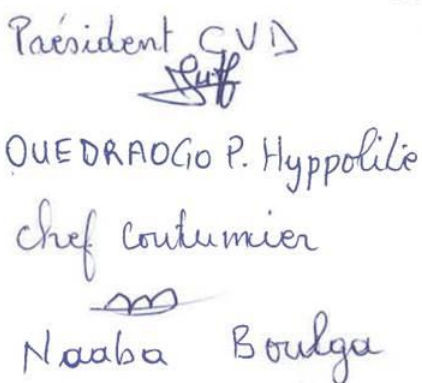 Président CVD
OUEDRAOGO P. Hyppolitie
chef coutumier
Naaba Boulga